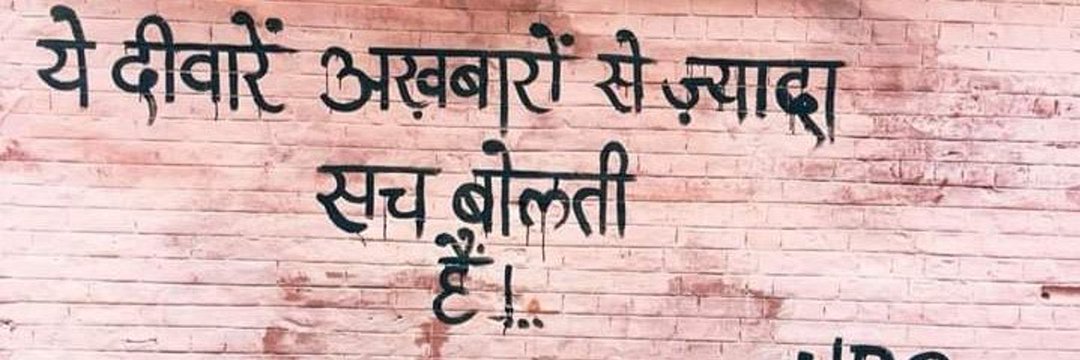 ये दीवारें अख़बारों से ज़्यादा
सच बोलती
हैं।..